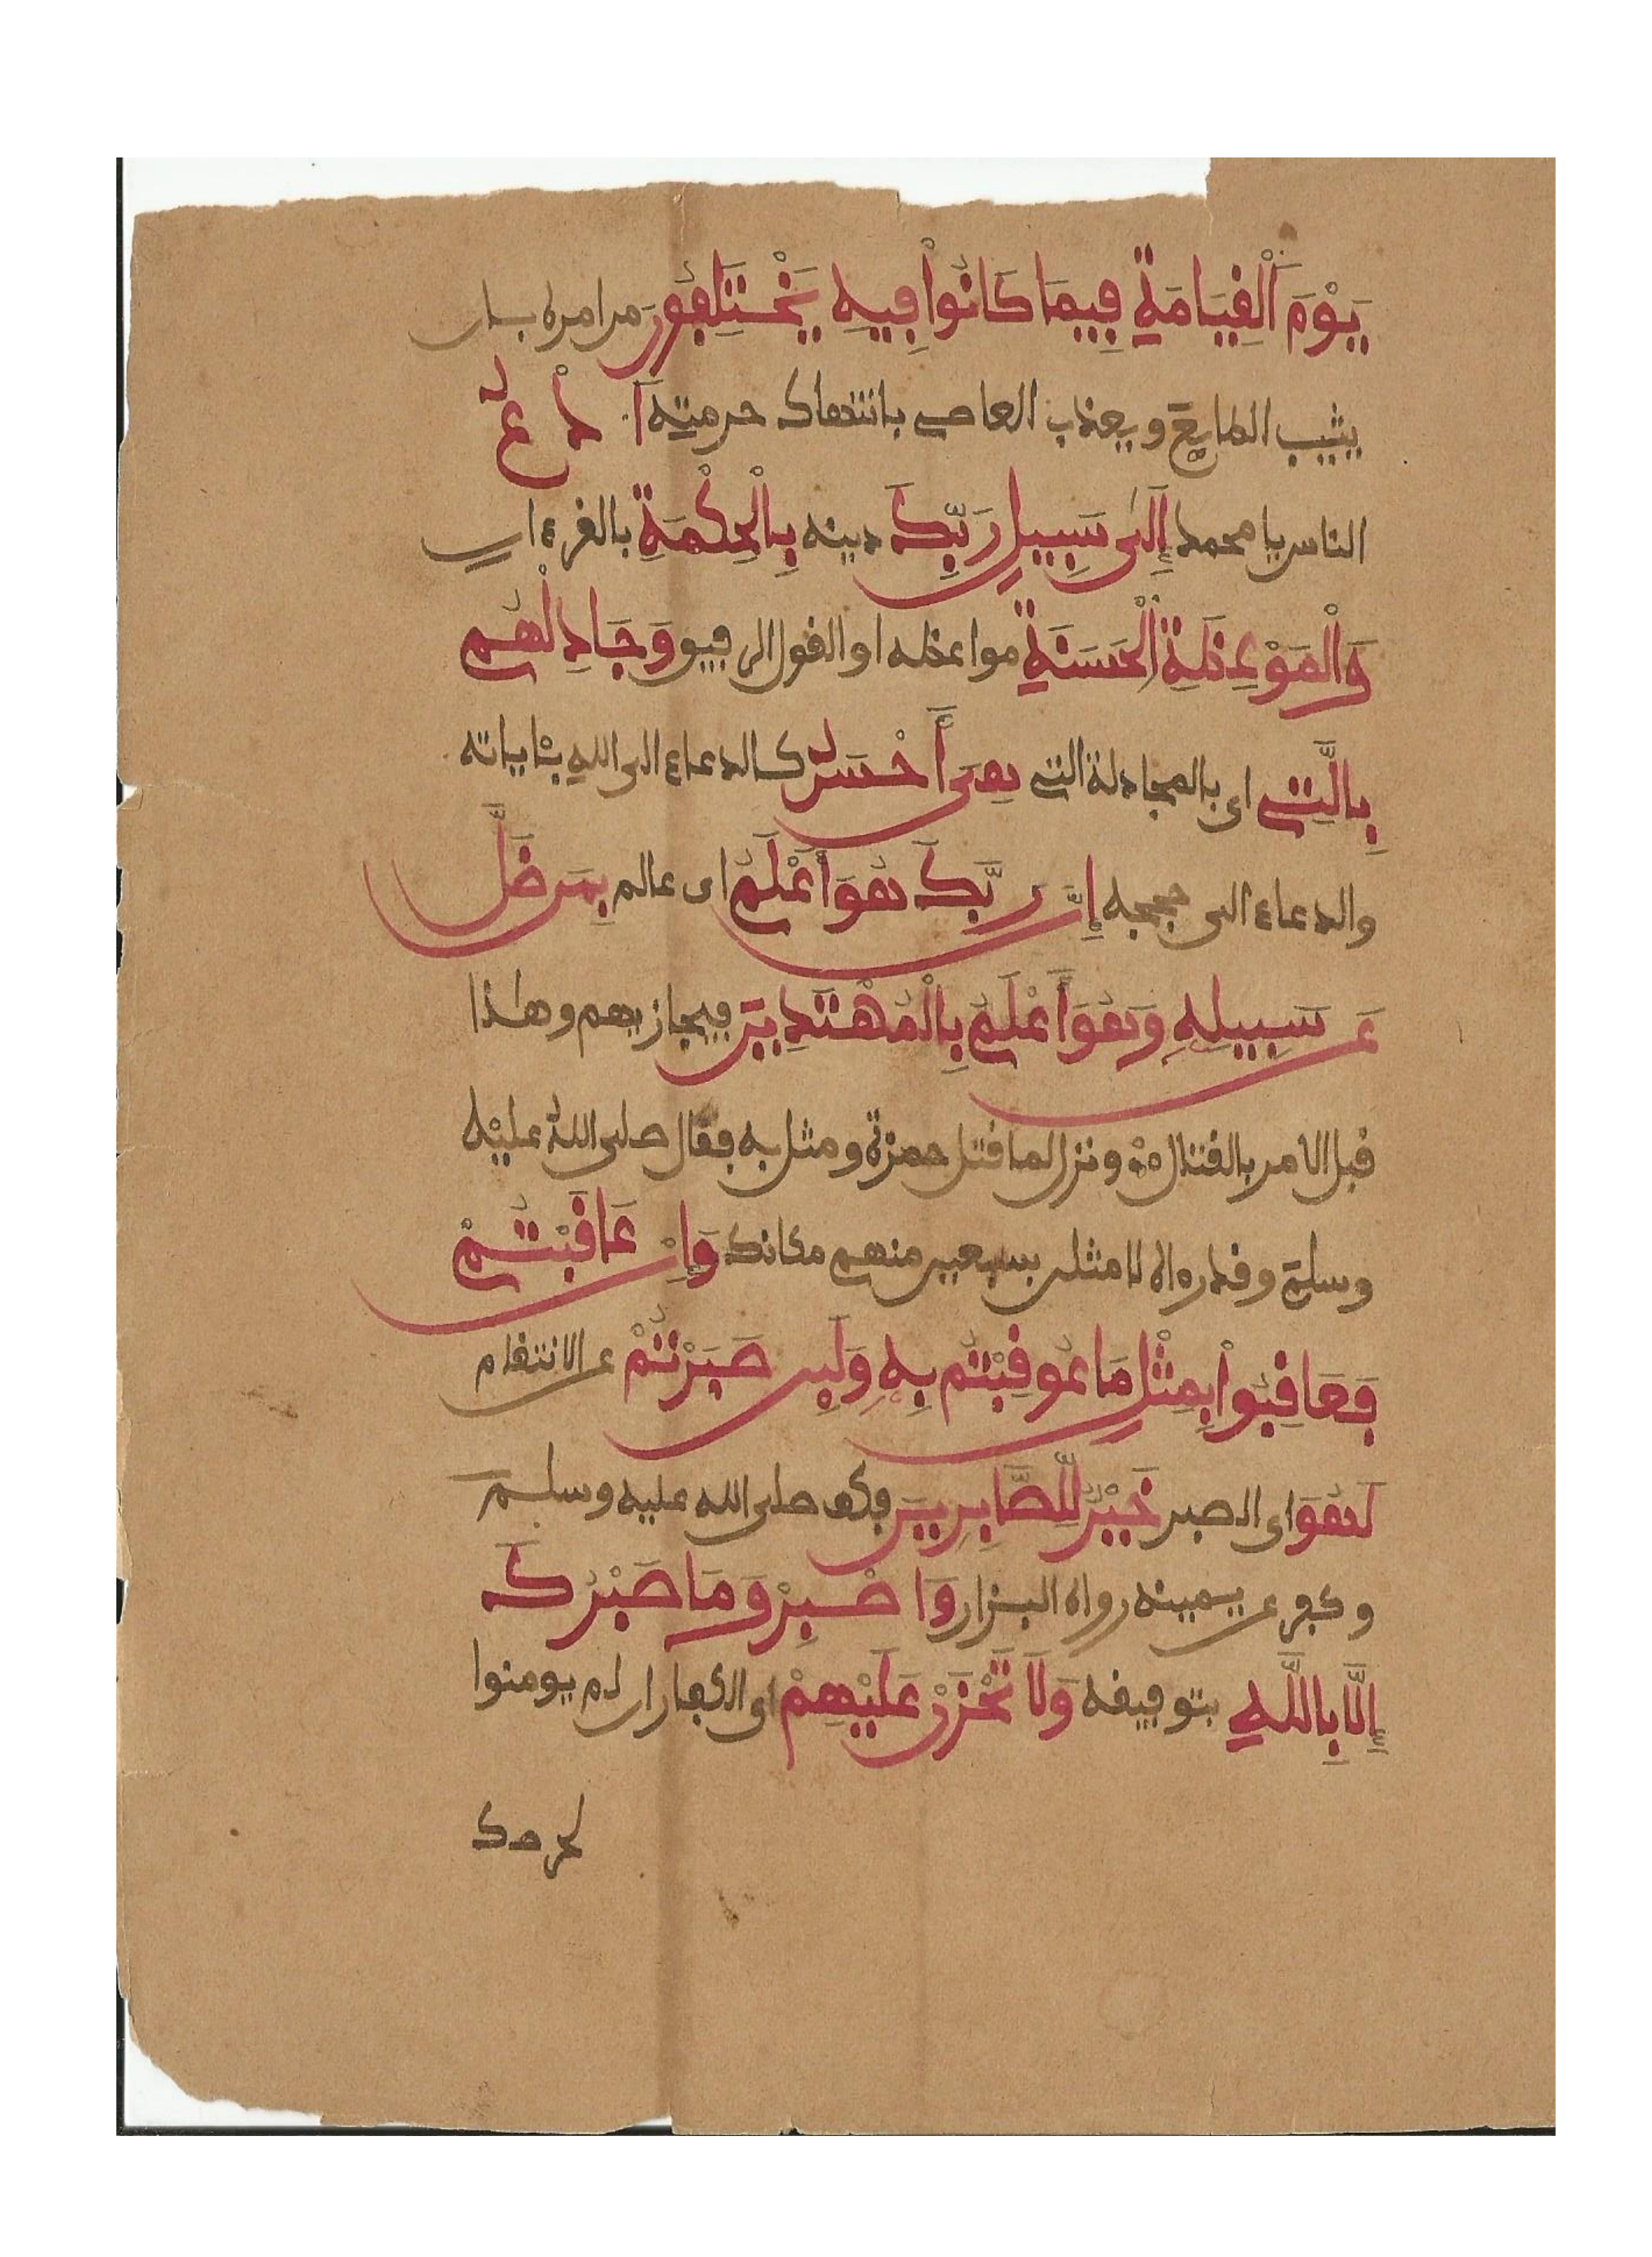 يَوْمَ اَ۬لْقِيَامَةِ فِيمَا كَانُواْ فِيهِ يَخْتَلِفُونَ من امره بان
يثيب الطايع ويعذب العاصي بانتهاك حرمته اَ۟دْعُ
الناس يا محمد إِلَىٰ سَبِيلِ رَبِّكَ دينه بِالْحِكْمَةِ بالقرءان
وَالْمَوْعِظَةِ اِ۬لْحَسَنَةِ مواعظه او القول الرفيق وَجَادِلْهُم
بِالَّتِي اى بالمجادلة التي هِيَ أَحْسَنُ كالدعاء الى الله بئاياته
والدعاء الى حججه إِنَّ رَبَّكَ هُوَ أَعْلَمُ اى عالم بِمَن ضَلَّ
عَن سَبِيلِهِ وَهُوَ أَعْلَمُ بِالْمُهْتَدِينَ فيجازيهم وهٰذا
قبل الامر بالقتال ونزل لما قتل حمزة ومثل به فقال صلى اللهُ عليْه
وسلم وقد رءاه لامثلن بسبعين منهم مكانك وَإِنْ عَاقَبْتُمْ
فَعَاقِبُواْ بِمِثْلِ مَا عُوقِبْتُم بِهِ وَلَئِن صَبَرْتُمْ عن الانتقام
لَهُوَ اى الصبر خَيْرٌ لِّلصَّابِرِينَ فكف صلى الله عليه وسلم
وكفر عن يمينه رواه البزار وَاصْبِرْ وَمَا صَبْرُكَ
إِلَّا بِاللَّهِ بتوفيقه وَلَا تَحْزَنْ عَلَيْهِمْ اى الكفار ان لم يومنوا
لحرصك